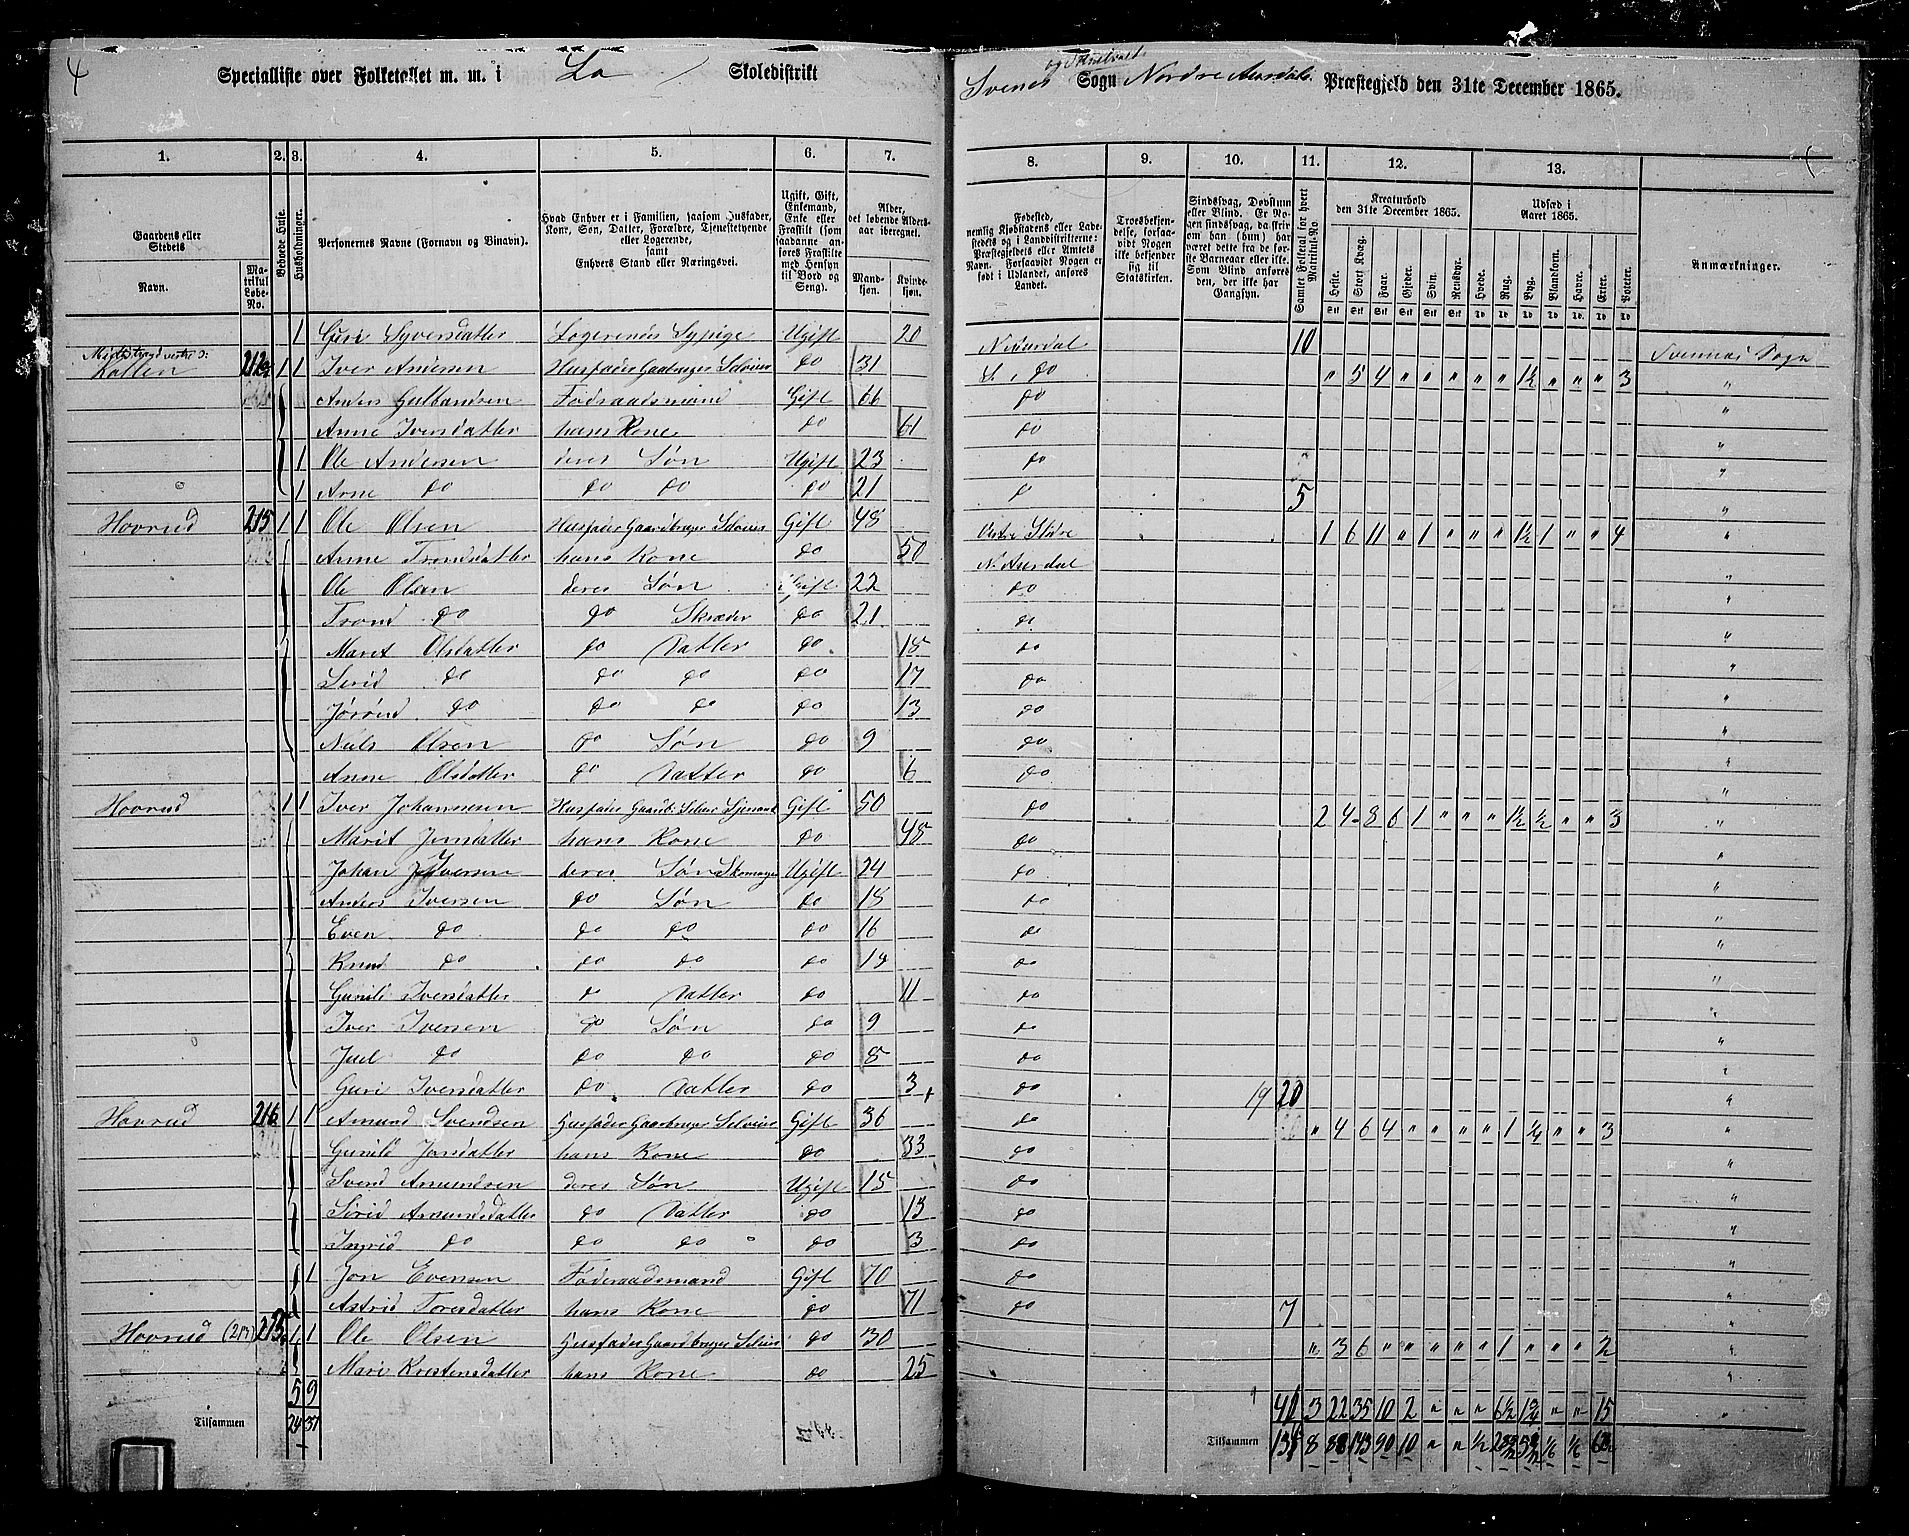 4
Specialliste over Folketallet m. m. i Lo Skoledistrikt
Svenes Sogn Nordre Aurdals Præstegjeld den 31te December 1865.
1. 2. 3. 4. 5. 6. 7. 8. 9. 10. 11. 12. 13.
Gaardens eller Stedets
Navn.
Matrikul Løbe-No.
Beboede Huse.
Husholdninger.
Personernes Navne (Fornavn og Tilnavn).
Hvad Enhver er i Familien, saasom Husfader, Kone, Søn, Datter, Forældre, Tjenestetyende eller Logerende, samt Enhvers Stand eller Næringsvei.
Ugift, Gift, Enkemand, Enke eller Fraskilt (som saadanne anføres Fraskilte med Hensyn til Bord og Seng).
Alder, det løbende Aldersaar iberegnet.
Mandkjøn. Kvindekjøn.
Fødested, nemlig Kjøbstadens eller Ladestedets og i Landdistrikterne: Præstegjeldets eller Amtets Navn. Forsaavidt Nogen er født i Udlandet, anføres Landet.
Troesbekjendelse, forsaavidt Nogen ikke bekjender sig til Statskirken.
Sindssvag, Døvstum eller Blind. Er Nogen sindssvag, da skrives om han (hun) har været dette fra de første Barneaar eller ikke. Som Blind anføres den, der ikke har Gangsyn.
Samlet Folketal for hvert Matrikul-No.
Kreaturhold den 31te December 1865.
Heste. Stort Kvæg. Faar. Gjeder. Svin. Rensdyr.
Udsæd i Aaret 1865.
Hvede. Rug. Byg. Blandkorn. Havre. Erter. Poteter.
Anmærkninger.
1 Guri Syversdatter Logerende Sypige Ugift 20 N. Aurdal 10
Kolten 1 1 Iver Andersen Husfader Gaardbruger Selveier do 31 do " 5 4 " " " " " 1½ " " " 3 Svennes Sogn
Anders Gulbrandsen Føderaadsmand Gift 66 do "
Anne Iversdatter hans Kone do 61 do "
1 Ole Andersen deres Søn Ugift 23 do "
1 Arne do do do do 21 do 5 "
Hovrud 215 1 1 Ole Olsen Husfader Gaardbruger Selveier Gift 48 Vestre Slidre 1 6 11 " 1 " " " 1½ 1 " " 4 "
Anne Trondsdatter hans Kone do 50 N. Aurdal "
Ole Olsen deres Søn Ugift 22 do "
Trond do do Skræder do 21 do "
Marit Olsdatter do Datter do 18 do "
Sirid do do do do 17 do "
Jørønd do do do do 13 do "
Niels Olsen do Søn do 9 do "
Anne Olsdatter do Datter do 6 do "
Hovrud 1 1 Iver Johannesen Husfader Gaardb: Selveier Gift 50 do 2 4 8 6 1 " " " 1½ ½ " " 3 "
Marit Jonsdatter hans Kone do 48 do "
Johan Iversen deres Søn Skomager Ugift 24 do "
Anders Iversen do Søn do 18 do "
Even do do do do 16 do "
Knud do do do do 14 do "
Gunild Iversdatter do Datter do 11 do "
Iver Iversen do Søn do 9 do "
Juel do do do do 8 do "
Guri Iversdatter do Datter do 3 do 19 20 "
Hovrud 216 1 1 Amund Svendsen Husfader Gaardbruger Selveier Gift 36 do " 4 6 4 " " " " 1 ¼ " " 3 "
Gunild Jonsdatter hans Kone do 33 do "
Svend Amundsen deres Søn Ugift 15 do "
Sirid Amundsdatter do Datter do 13 do "
Ingrid do do do do 3 do "
1 Jon Evensen Føderaadsmand Gift 70 do "
Astrid Toresdatter hans Kone do 71 do 7 "
Hovrud (217) 1 1 Ole Olsen Husfader Gaardbruger Selveier do 30 " 3 6 " " " " " 1 " " " 2 "
Mari Kristensdatter hans Kone do 25 "
5 9
Tilsammen 24 37
3 22 35 10 2 " " " 6½ 1¾ " " 15 "
Tilsammen 8 90 10 " " ½